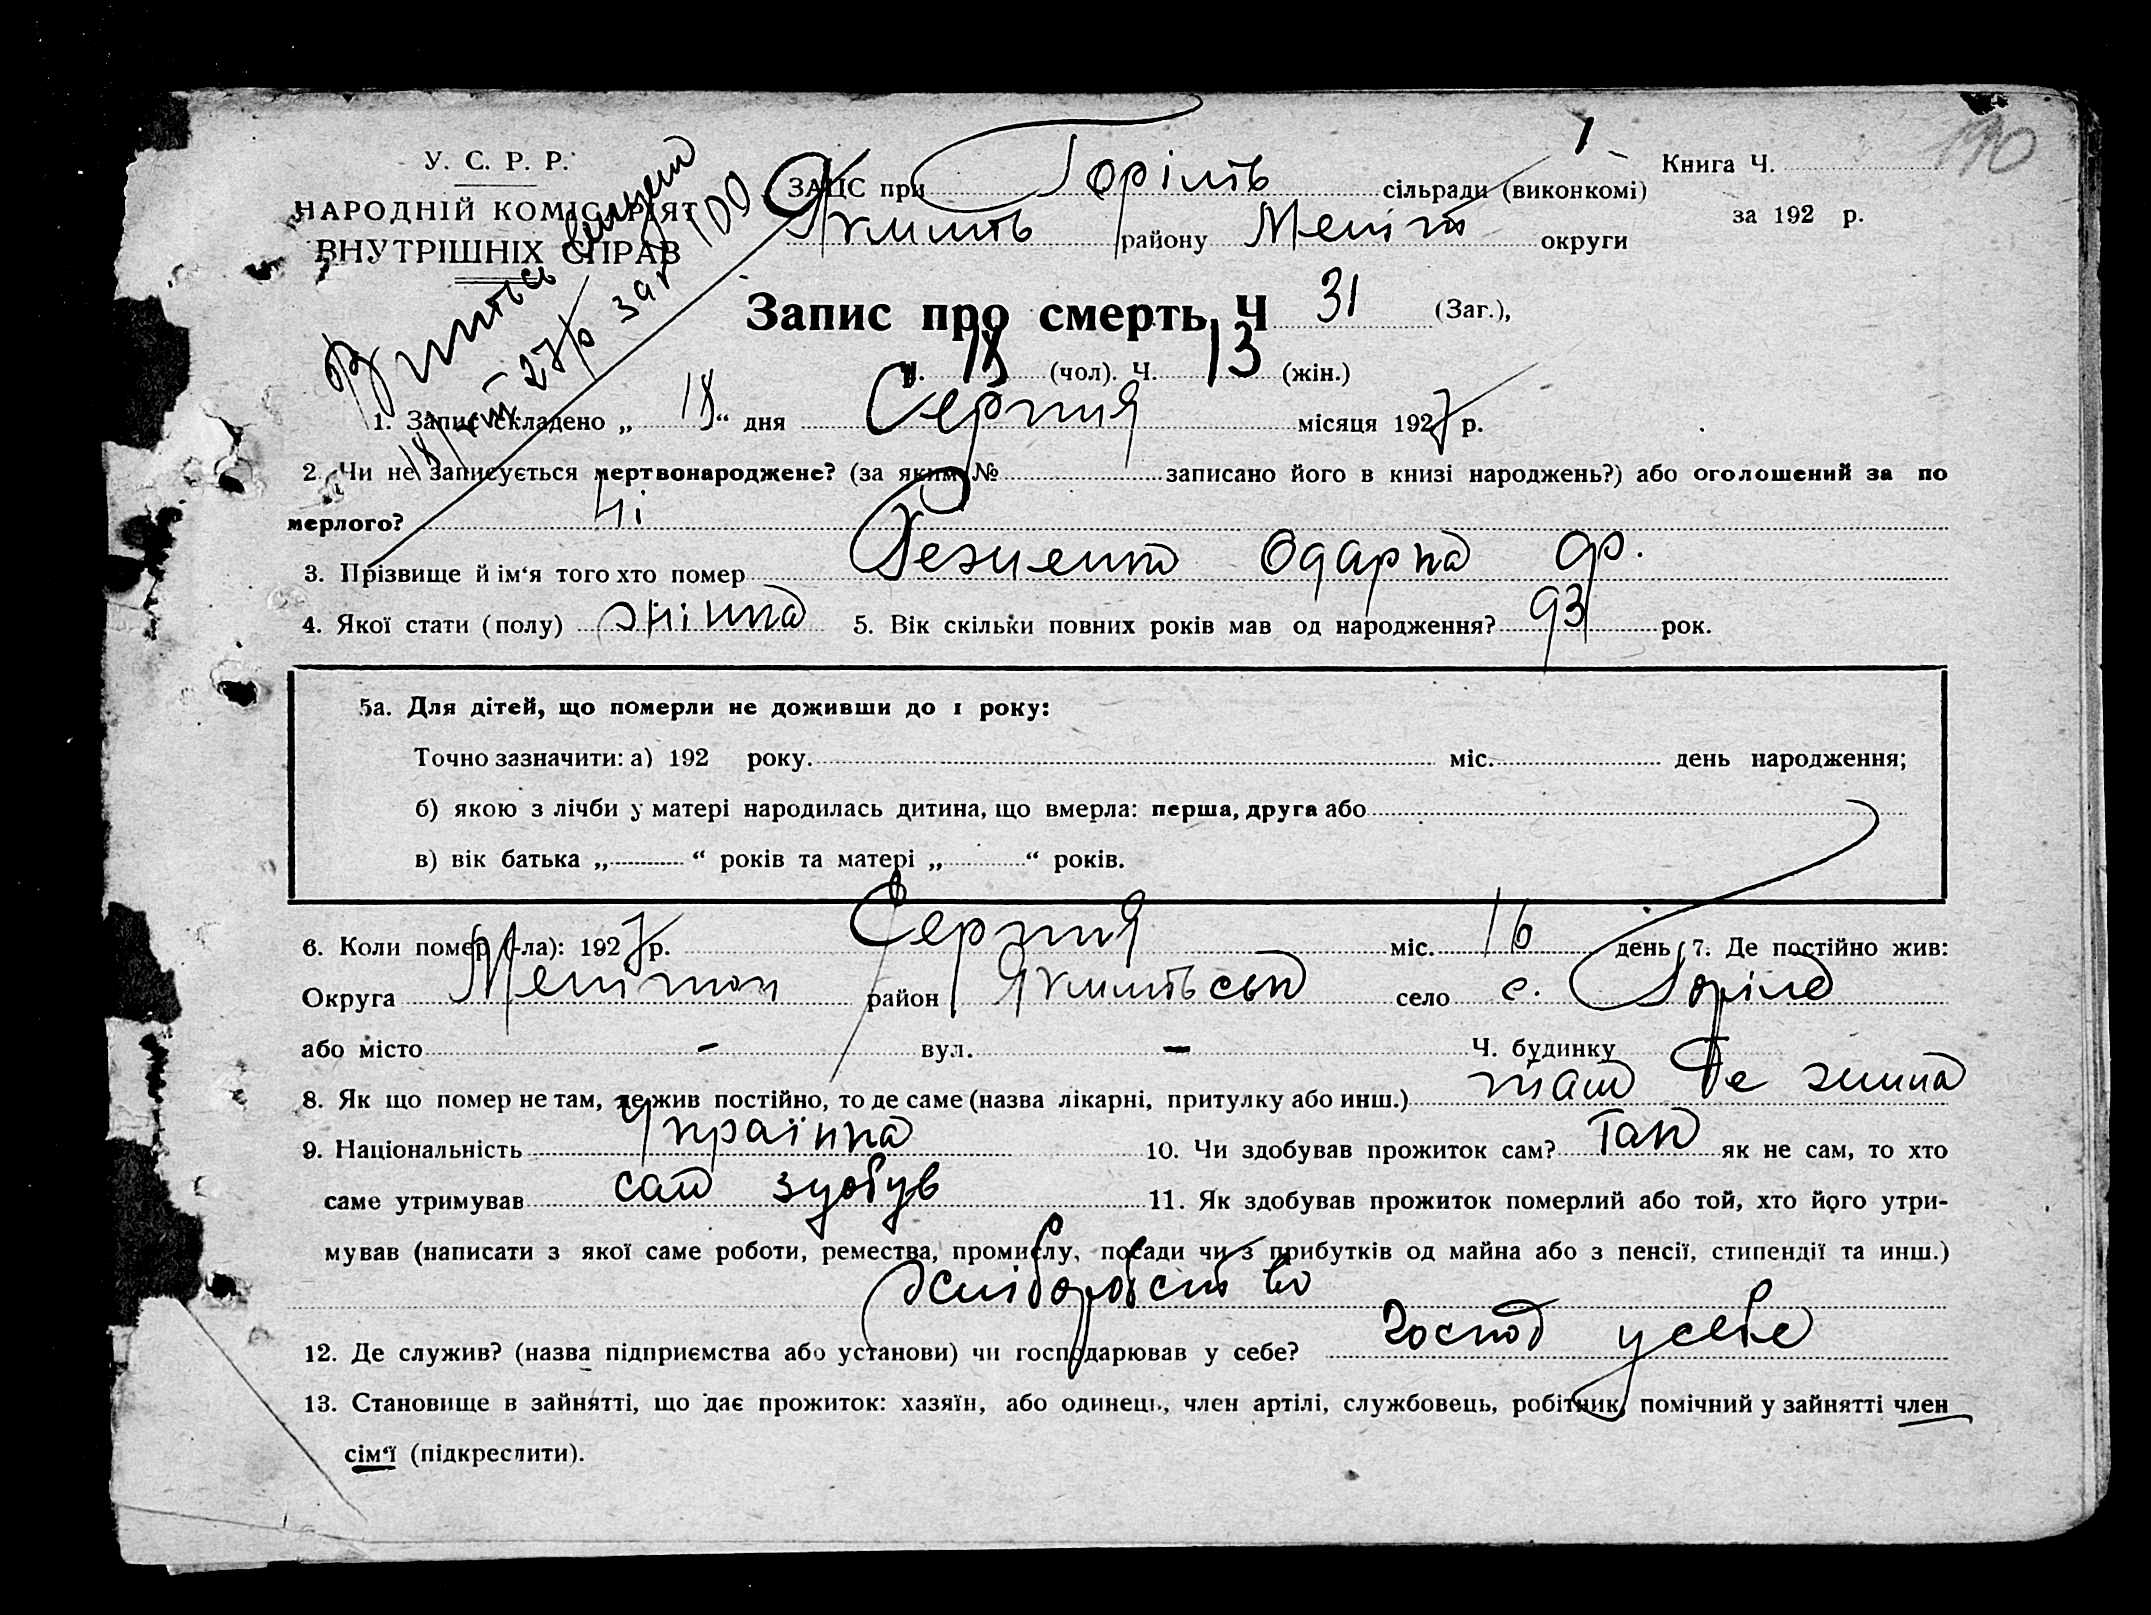 У. С. Р. Р.
НАРОДНІЙ КОМІСАРІЯТ
ВНУТРІШНІХ СПРАВ
190
ЗАГС при Горілів сільради (виконкомі) Книга Ч.
Якимів району Меліт округи за 192 р.
Витяг
18/VIII 27 р за № 100
Запис про смерть Ч 31 (Заг.),
Ч. 18 (чол). Ч. 13 (жін.)
1. Запис складено „ 18 “ дня Серпня місяця 1927 р.
2. Чи не записується мертвонароджене? (за яким № записано його в книзі народжень?) або оголошений за по
мерлого? Ні
3. Прізвище й ім‘я того хто помер Одарка Ф.
4. Якої стати (полу) жінка 5. Вік скільки повних років мав од народження? 93 рок.
5а. Для дітей, що померли не доживши до 1 року:
Точно зазначити: а) 192 року. міс. день народження;
б) якою з лічби у матері народилась дитина, що вмерла: перша, друга або
в) вік батька „ “ років та матері „ “ років.
6. Коли помер (-ла): 1927 р. Серпня міс. 16 день 7. Де постійно жив:
Округа Мелітоп район Якимівськ село с. Горіле
або місто - вул. - Ч. будинку
8. Як що помер не там, де жив постійно, то де саме (назва лікарні, притулку або инш.) там де жила
9. Національність Українка 10. Чи здобував прожиток сам? Так як не сам, то хто
саме утримував сам здобув 11. Як здобував прожиток померлий або той, хто його утри-
мував (написати з якої саме роботи, ремества, промислу, посади чи з прибутків од майна або з пенсії, стипендії та инш.)
хліборобство
12. Де служив? (назва підприємства або установи) чи господарював у себе? господ у себе
13. Становище в зайнятті, що дає прожиток: хазяїн, або одинець, член артілі, службовець, робітник, помічний у зайнятті член
сім‘ї (підкреслити).